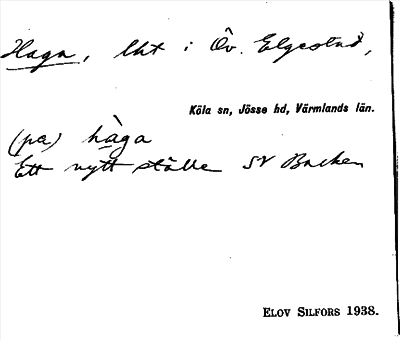 Haga, lht i Öv. Elgestad,
Köla sn, Jösse hd, Värmlands län.
(pa) hàga
Ett nytt ställe SV Backen
ELOV SILFORS 1938.